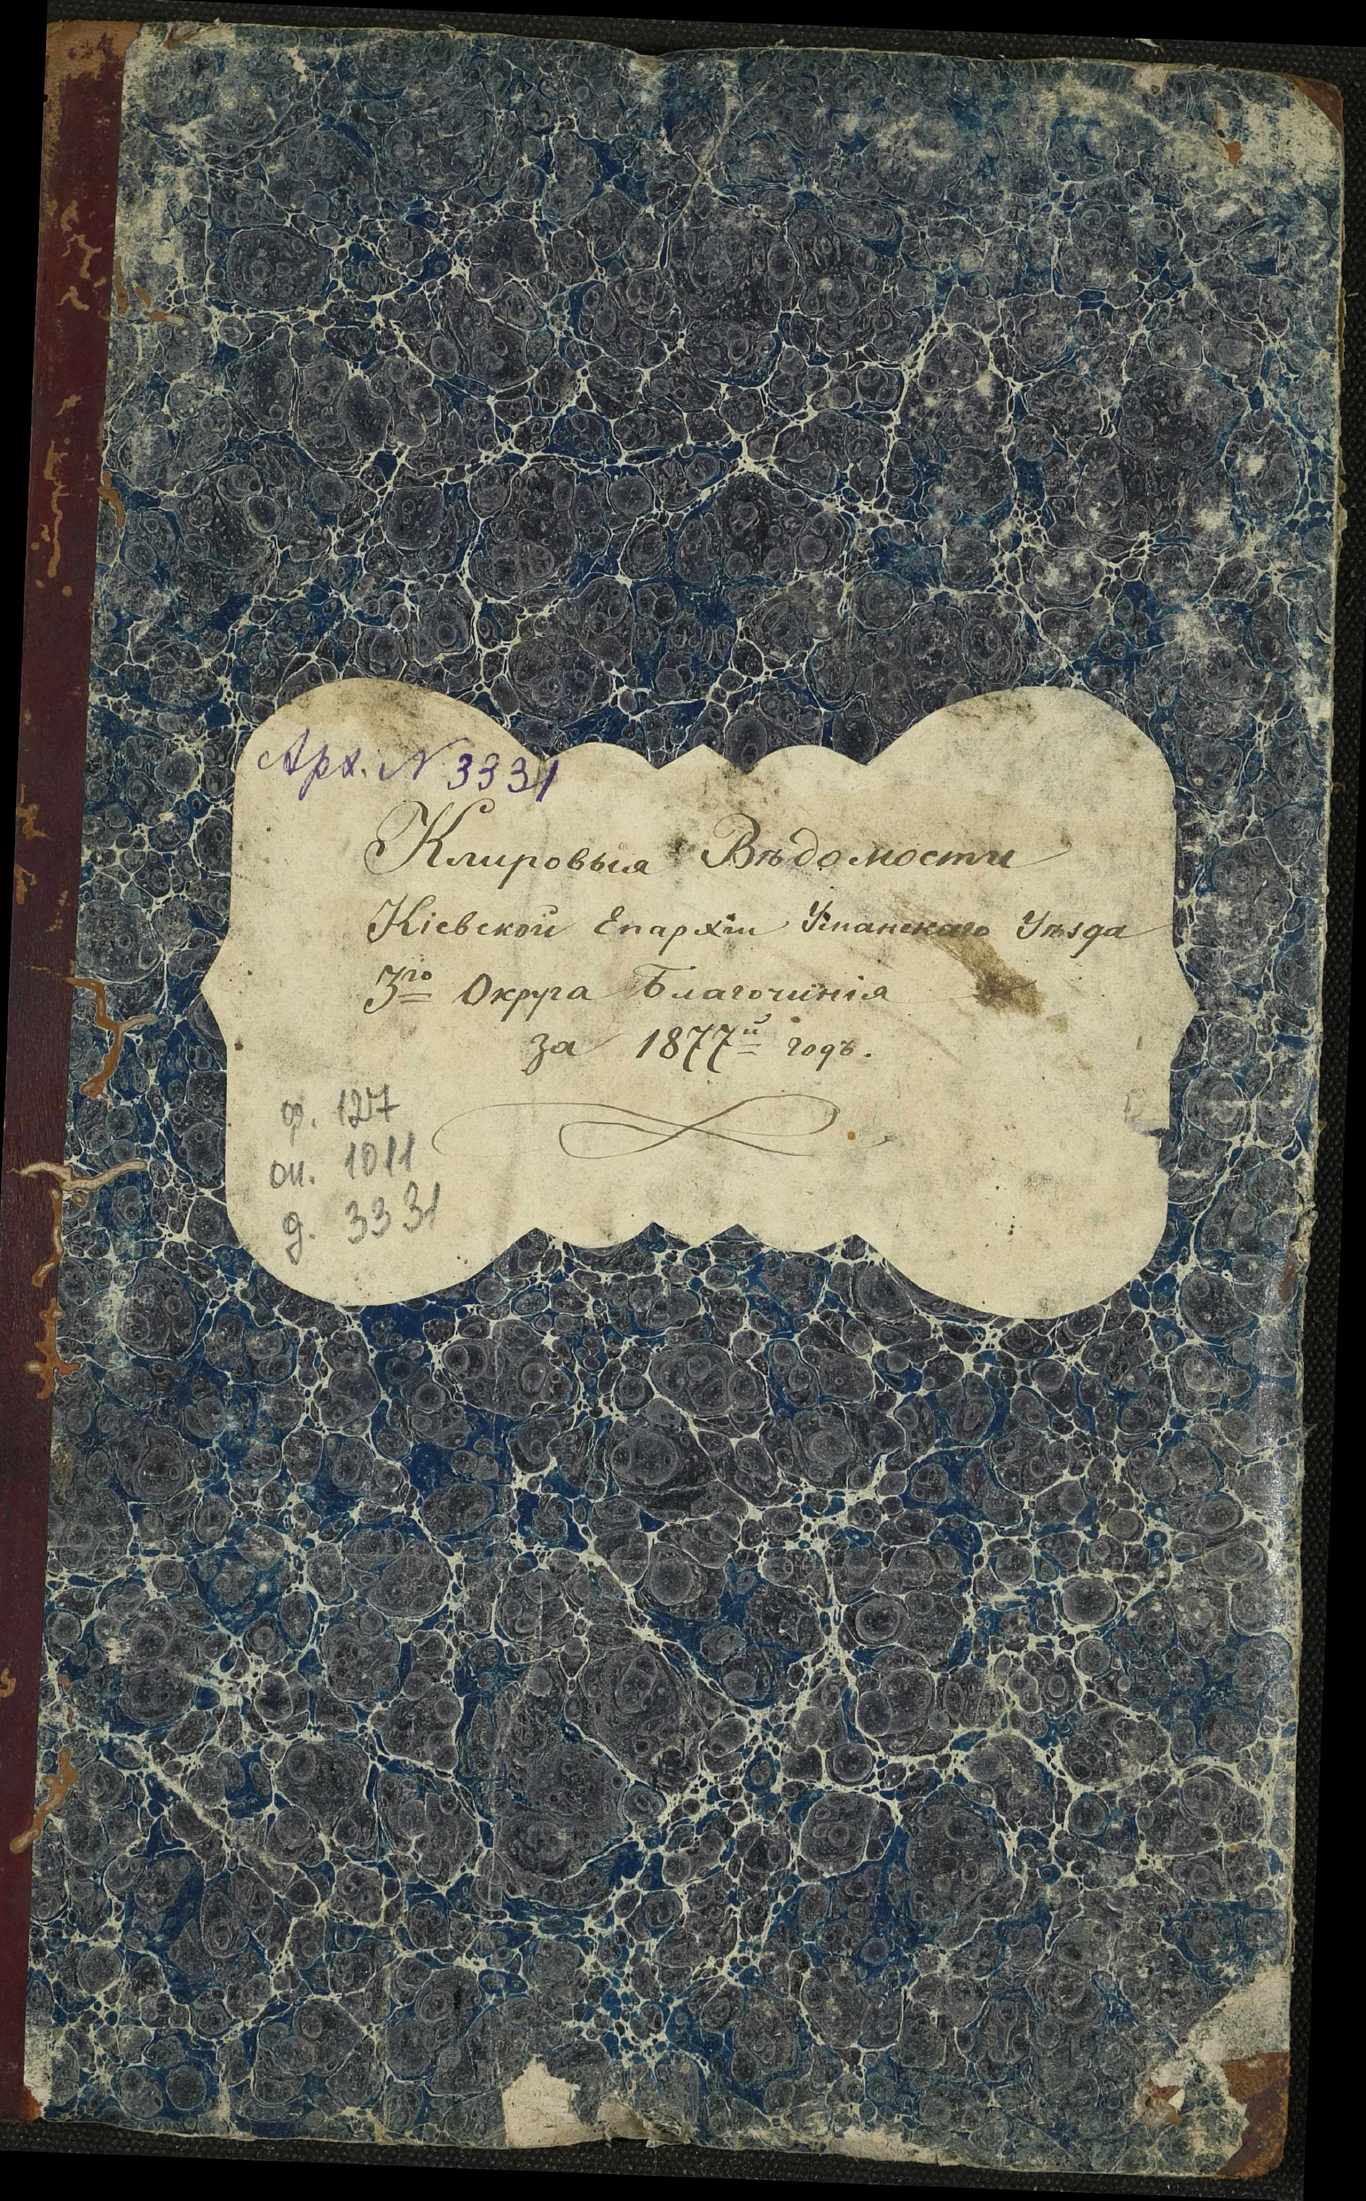 Арх. N 3331
Клировыя Вѣдомости
Кіевской Епархіи Уманскаго Уѣзда
3го Округа Благочинія
за 1877й годъ.
ф. 127
оп. 1011
д. 3331